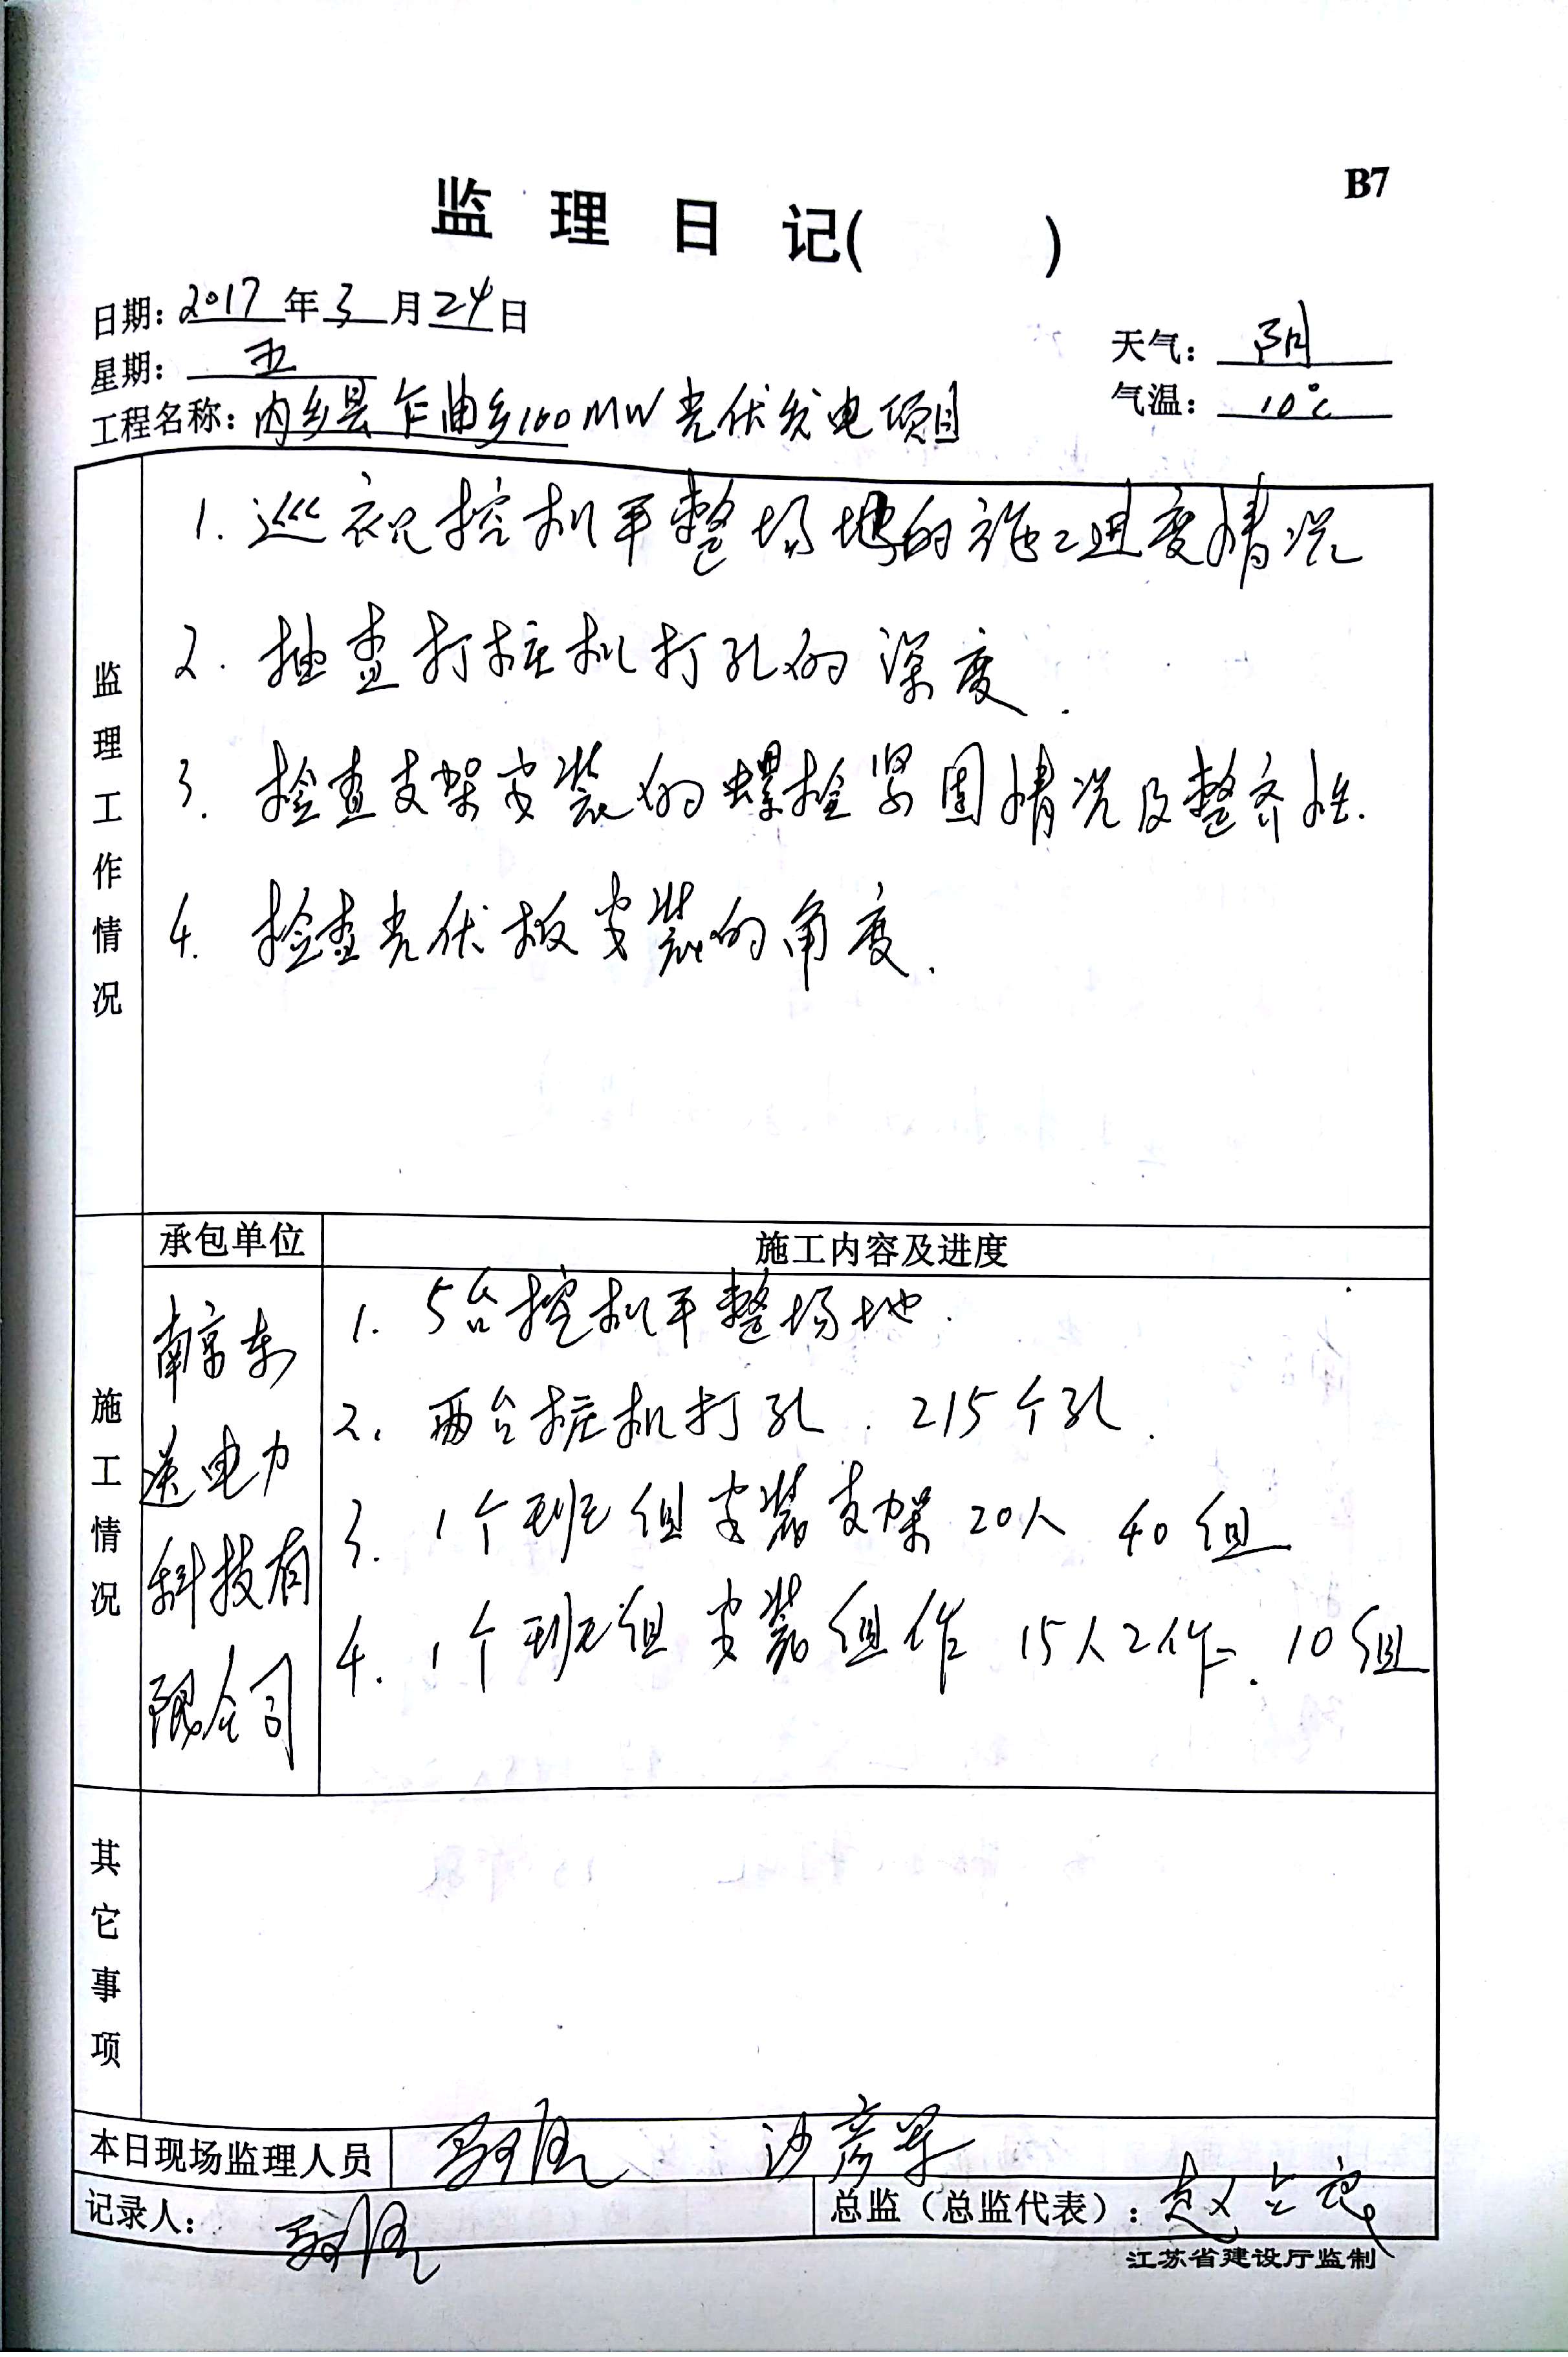 B7
监理日记(  )
日期: 2017 年 3 月 24 日
星期: 五
天气: 阴
气温: 10℃
工程名称: 内乡县乍曲乡100MW光伏发电项目
监理工作情况
1. 巡视挖机平整场地的施工进度情况
2. 抽查打桩机打孔的深度.
3. 检查支架安装的螺栓紧固情况及整齐性.
4. 检查光伏板安装的角度.
施工情况
承包单位
施工内容及进度
南京东
送电力
科技有
限公司
1. 5台挖机平整场地.
2. 两台桩机打孔. 215个孔.
3. 1个班组安装支架 20人 40组
4. 1个班组安装组件 15人工作. 10组
其它事项
本日现场监理人员
沙彦军
记录人:
总监（总监代表）: 赵
江苏省建设厅监制